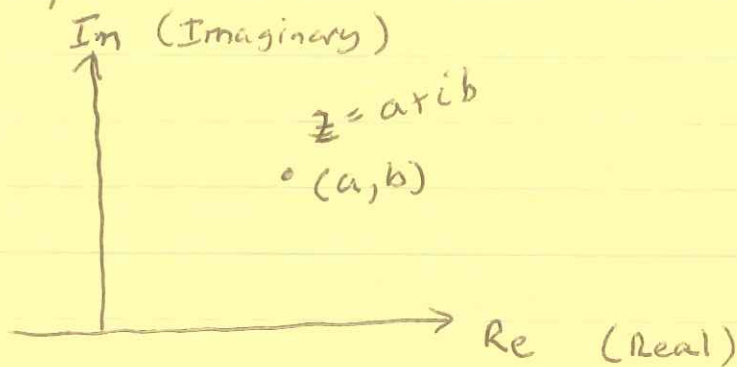 Im (Imaginary)
z = a+ib
(a,b)
Re (Real)